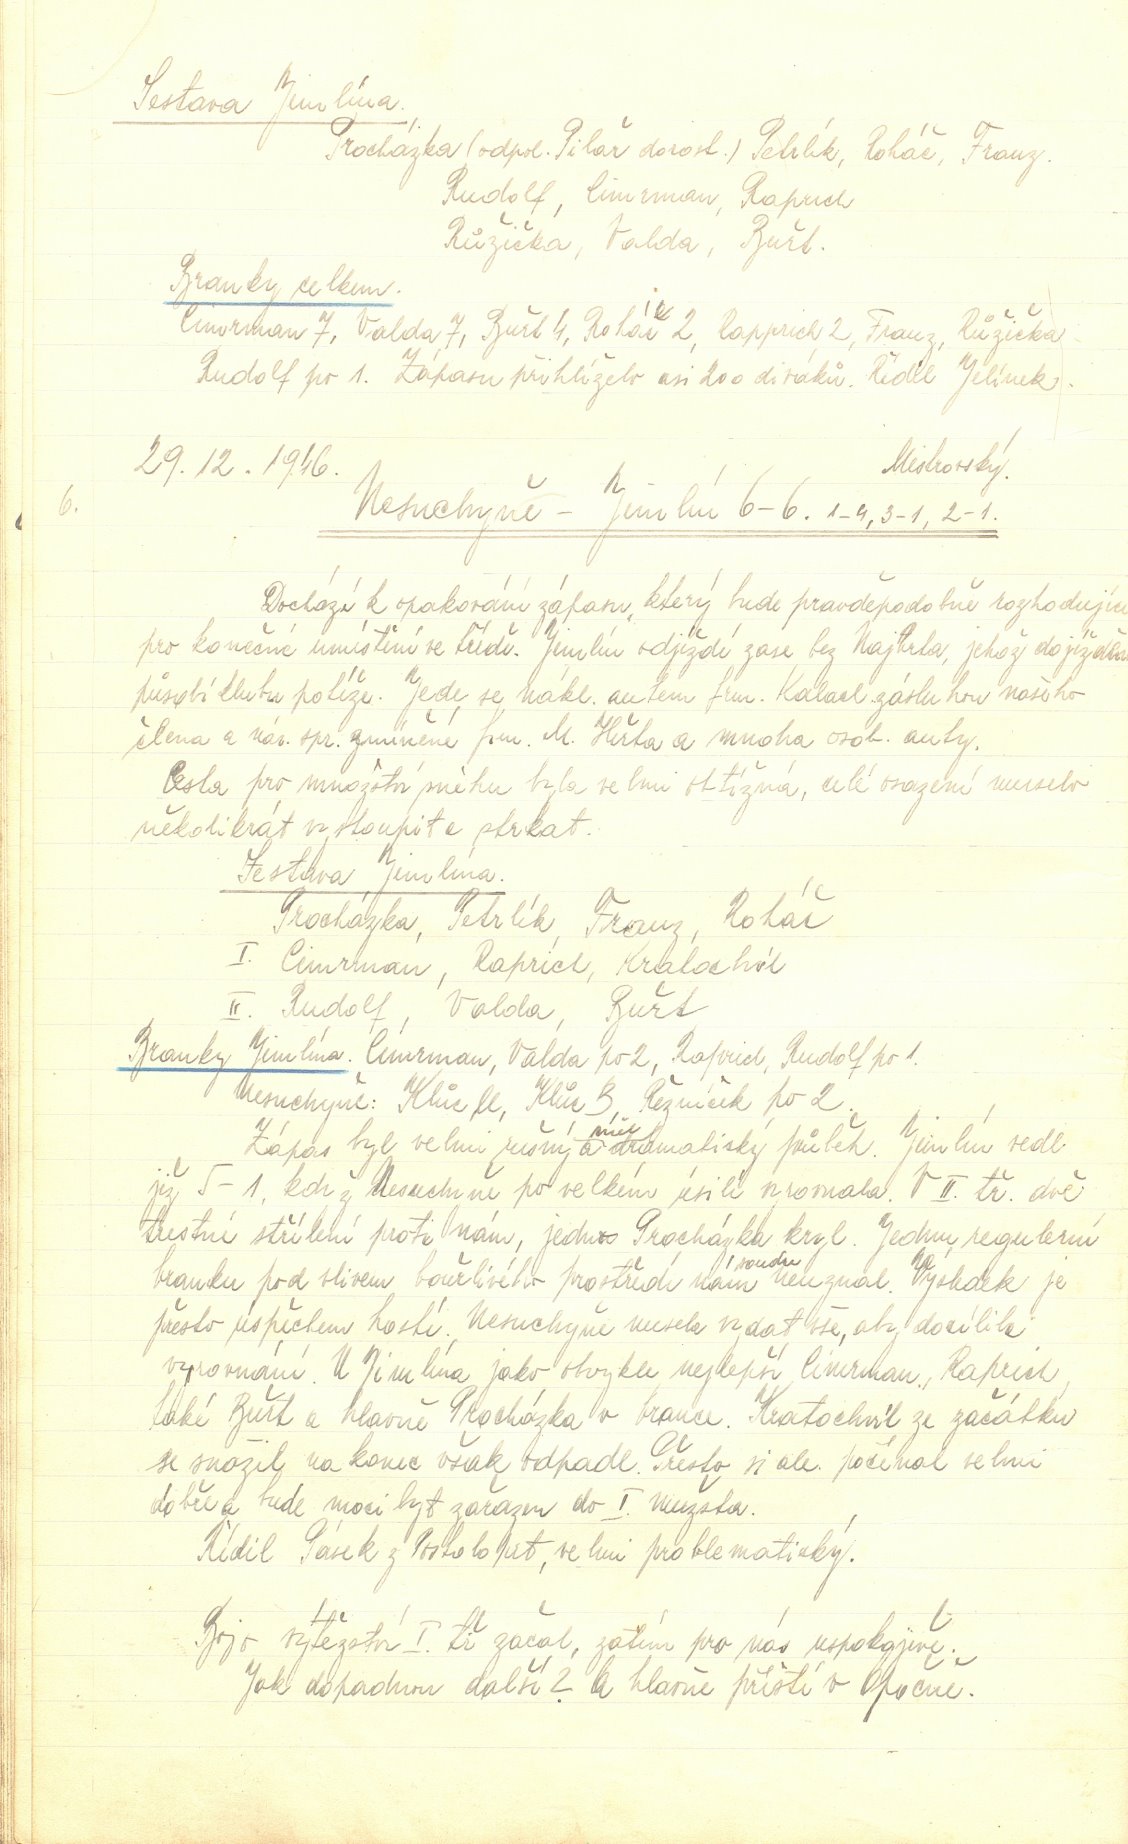 Sestava Jimlína.
Procházka (odpol. Pilař dorost.) Petrlík, Roháč, Franz.
Rudolf, Cimrman, Raprich
Růžička, Valda, Buřt.
Branky celkem.
Cimrman 7, Valda 7, Buřt 4, Roháč 2, Rapprich 2, Franz, Růžička
Rudolf po 1. Zápasu přihlíželo asi 200 diváků. Řídil Jelínek.
29. 12. 1946. Mistrovský.
6. Nesuchyně – Jimlín 6–6. 1–4, 3–1, 2–1.
Dochází k opakování zápasu, který bude pravděpodobně rozhodující
pro konečné umístění ve třídě. Jimlín odjíždí zase bez Najtrta, jehož dojíždění
působí klubu potíže. Jede se nákl. autem frm. Kalael. zásluhou našeho
člena a náv. spr. zmíněné frm. M. Hřta a mnoha osob. auty.
Cesta pro množství sněhu byla velmi obtížná, celé osazení muselo
několikrát vystoupit a strkat.
Sestava Jimlína.
Procházka, Petrlík, Franz, Roháč
I. Cimrman, Raprich, Kratochvíl
II. Rudolf, Valda, Buřt
Branky Jimlína. Cimrman, Valda po 2, Raprich, Rudolf po 1.
Nesuchyně: Klůc A, Klůc B, Řezníček po 2.
Zápas byl velmi rušný a měl dramatický průběh. Jimlín vedl
již 5–1, když Nesuchyně po velkém úsilí vyrovnala. V II. tř. dvě
trestné střílení proti nám, jedno Procházka kryl. Jednu regulerní
branku pod vlivem bouřlivého prostředí nám soudce neuznal. Výsledek je
přesto úspěchem hostí. Nesuchyně musela vydat vše, aby docílila
vyrovnání. U Jimlína jako obvykle nejlepší Cimrman, Raprich,
také Buřt a hlavně Procházka v brance. Kratochvíl ze začátku
se snažil, na konec však odpadl. Přesto si ale počínal velmi
dobře a bude moci být zařazen do I. mužstva.
Řídil Pásek z Postoloprt, velmi problematický.
Boj o vítězství I. tř. začal, zatím pro nás uspokojivě.
Jak dopadnou další? A hlavně příští v Opočně.